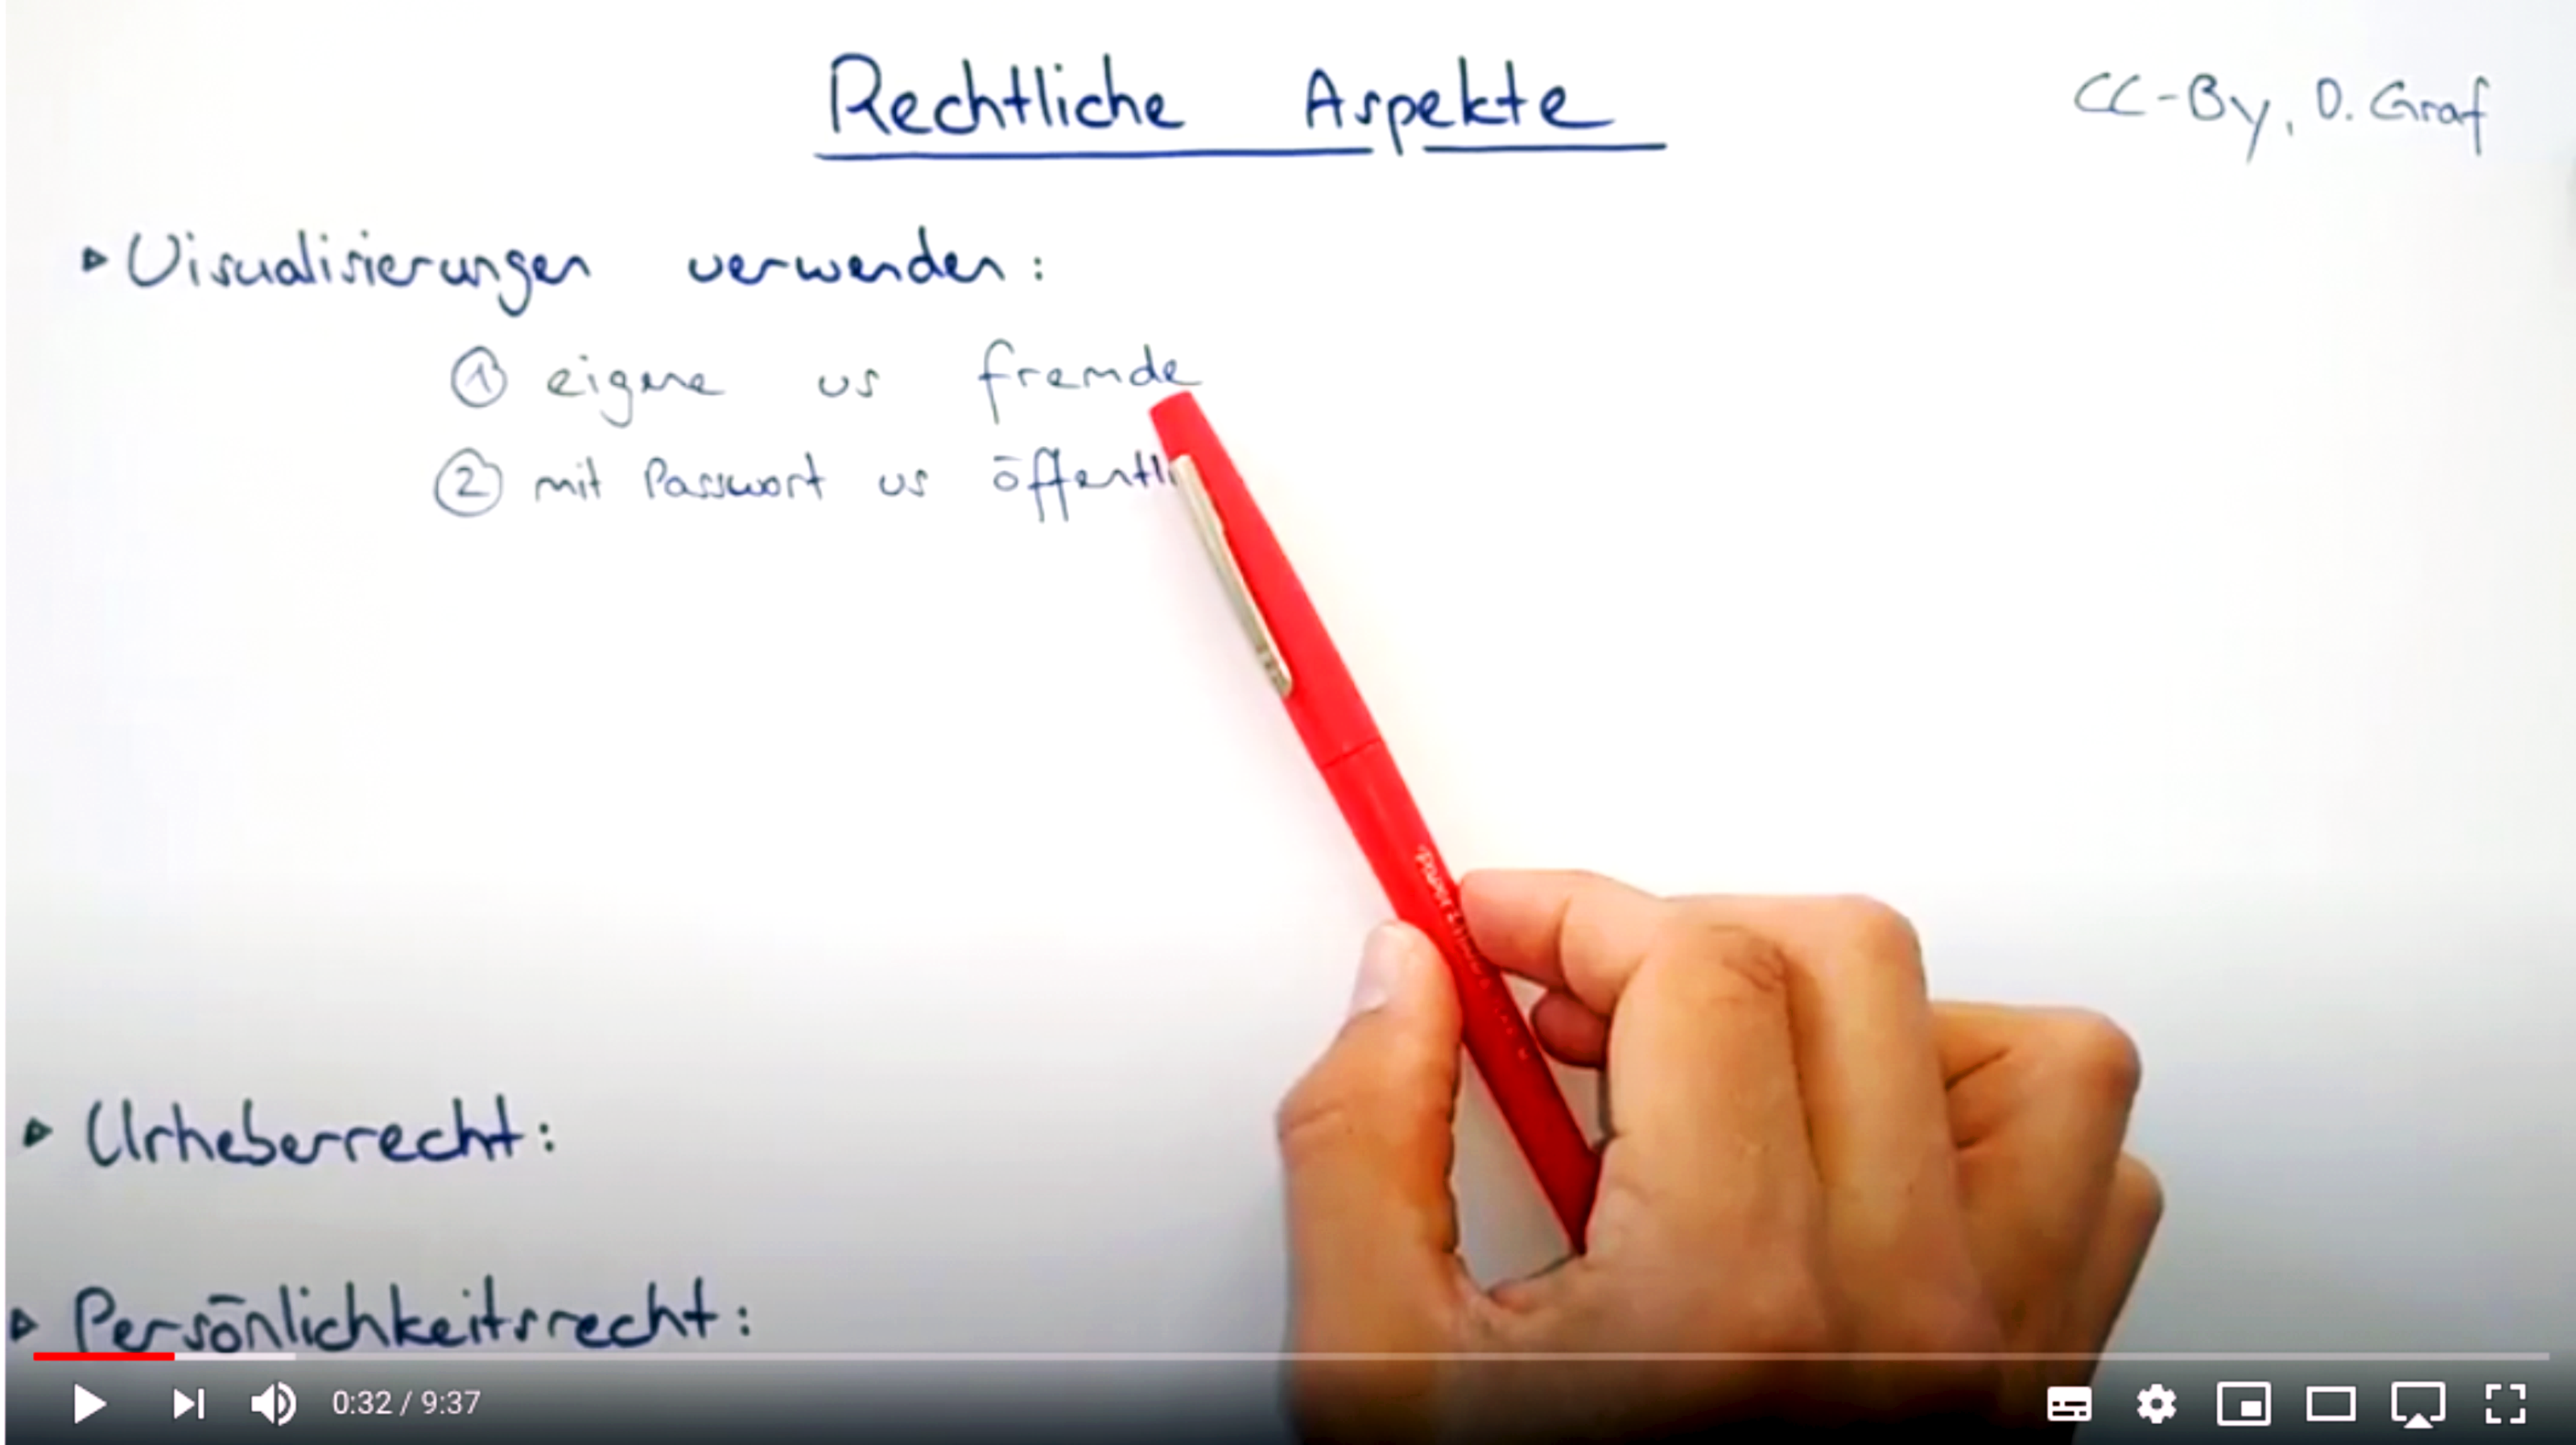 Rechtliche Aspekte
CC-By, D. Graf
▸ Visualisierungen verwenden:
① eigene vs fremde
② mit Passwort vs öffentli
▸ Urheberrecht:
▸ Persönlichkeitsrecht:
0:32 / 9:37